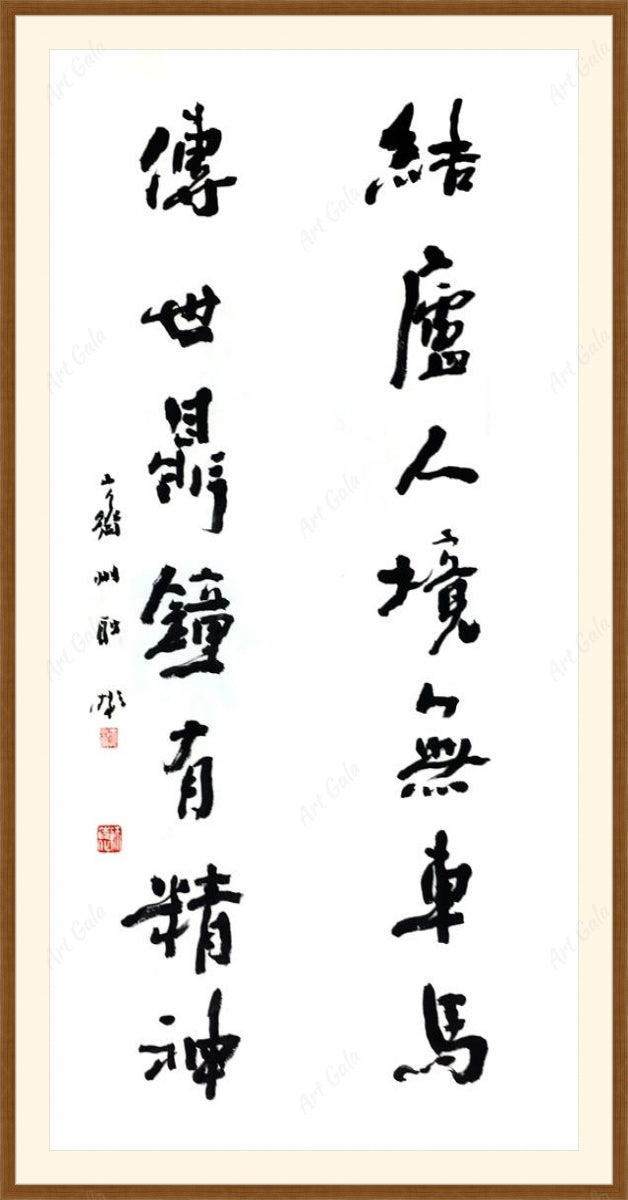 結廬人境無車馬
傳世鼎鐘有精神
齊州耿彬
Art Gala
Art Gala
Art Gala
Art Gala
Art Gala
Art Gala
Art Gala
Art Gala
Art Gala
Art Gala
Art Gala
Art Gala